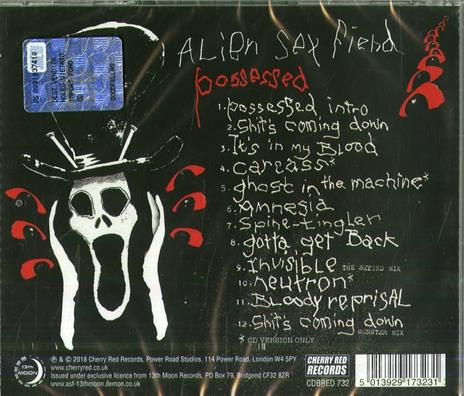 Alien Sex Fiend
possessed
1. possessed intro
2. Shit's coming down
3. It's in my Blood
4. carcass*
5. ghost in the machine*
6. Amnesia
7. Spine-tingler
8. gotta get Back
9. Invisible THE BEYOND MIX
10. neutron*
11. Bloody reprisal
12. Shit's coming down MONSTER MIX
* CD VERSION ONLY
13th MOON
℗ & © 2018 Cherry Red Records, Power Road Studios, 114 Power Road, London W4 5PY
Issued under exclusive licence from 13th Moon Records, PO Box 79, Bridgend CF32 8ZR
www.asf-13thmoon.demon.co.uk
CHERRY RED RECORDS
CDBRED 732
5 013929 173231